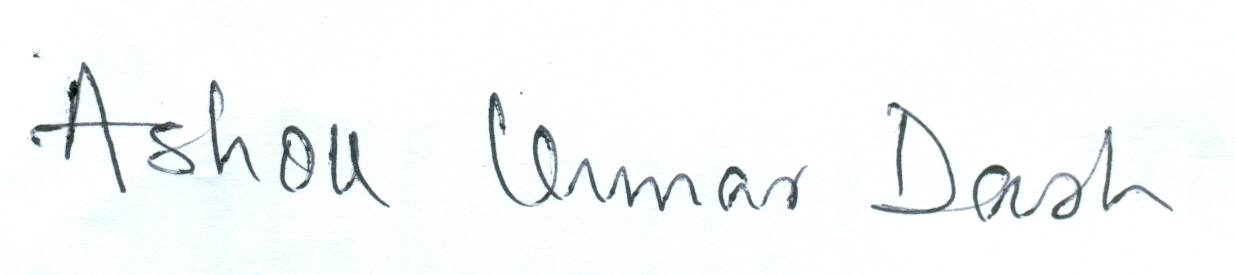 Ashok Kumar Dash